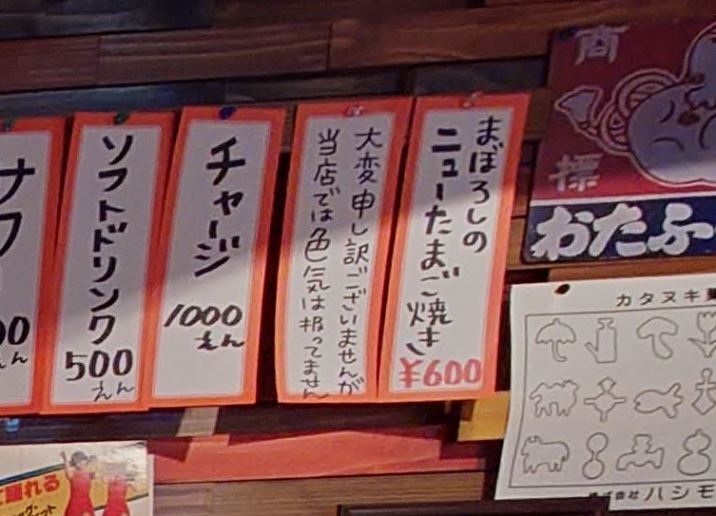 まぼろしの
ニューたまご焼き
¥600
大変申し訳ございませんが
当店では色気は扱ってません
チャージ
1000
えん
ソフトドリンク
500
えん
サワ
えん
商
標
おたふ
カタヌキ
株式会社ハシモ
て踊れる